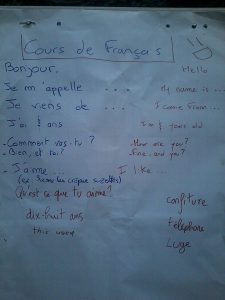 Cours de Français
Bonjour, Hello
Je m'appelle ... My name is ...
Je viens de ... I come from ...
J'ai ans I'm years old
- Comment vas-tu ? - How are you?
- Bien, et toi? - Fine, and you?
- J'aime ... I like ...
(ex:
Qu'est ce que tu aimes?
confiture
dix-huit ans
téléphone
this used
Luge